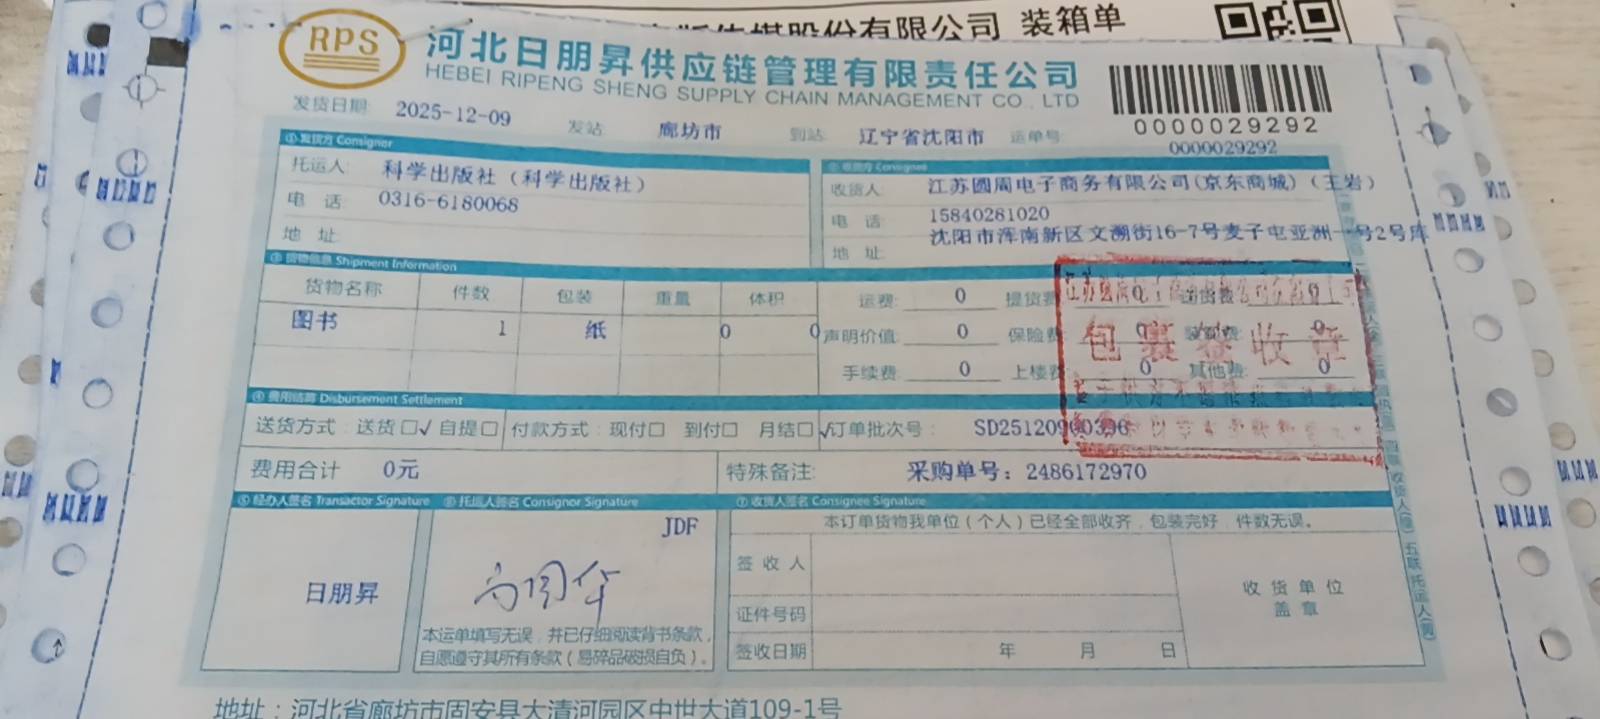 股份有限公司 装箱单
RPS
河北日朋昇供应链管理有限责任公司
HEBEI RIPENG SHENG SUPPLY CHAIN MANAGEMENT CO., LTD
0000029292
发货日期: 2025-12-09 发站: 廊坊市 到站: 辽宁省沈阳市 运单号: 0000029292
①发货方 Consignor
托运人: 科学出版社（科学出版社）
电 话: 0316-6180068
地 址:
②收货方 Consignee
收货人: 江苏圆周电子商务有限公司(京东商城)（王岩）
电 话: 15840281020
地 址: 沈阳市浑南新区文溯街16-7号麦子屯亚洲一号2号库
③货物信息 Shipment Information
货物名称 件数 包装 重量 体积
图书 1 纸 0 0
运费: 0 提货费: 0 送货费: 0
声明价值: 0 保险费: 0 装卸费: 0
手续费: 0 上楼费: 0 其他费: 0
包裹签收章
④费用结算 Disbursement Settlement
送货方式: 送货□√ 自提□ 付款方式: 现付□ 到付□ 月结□√ 订单批次号: SD25120900396
费用合计 0元 特殊备注: 采购单号：2486172970
⑤经办人签名 Transactor Signature
日朋昇
⑥托运人签名 Consignor Signature
JDF
本运单填写无误，并已仔细阅读背书条款，
自愿遵守其所有条款（易碎品破损自负）。
⑦收货人签名 Consignee Signature
本订单货物我单位（个人）已经全部收齐，包装完好，件数无误。
签 收 人
证件号码
签收日期 年 月 日
收 货 单 位
盖 章
地址：河北省廊坊市固安县大清河园区中世大道109-1号